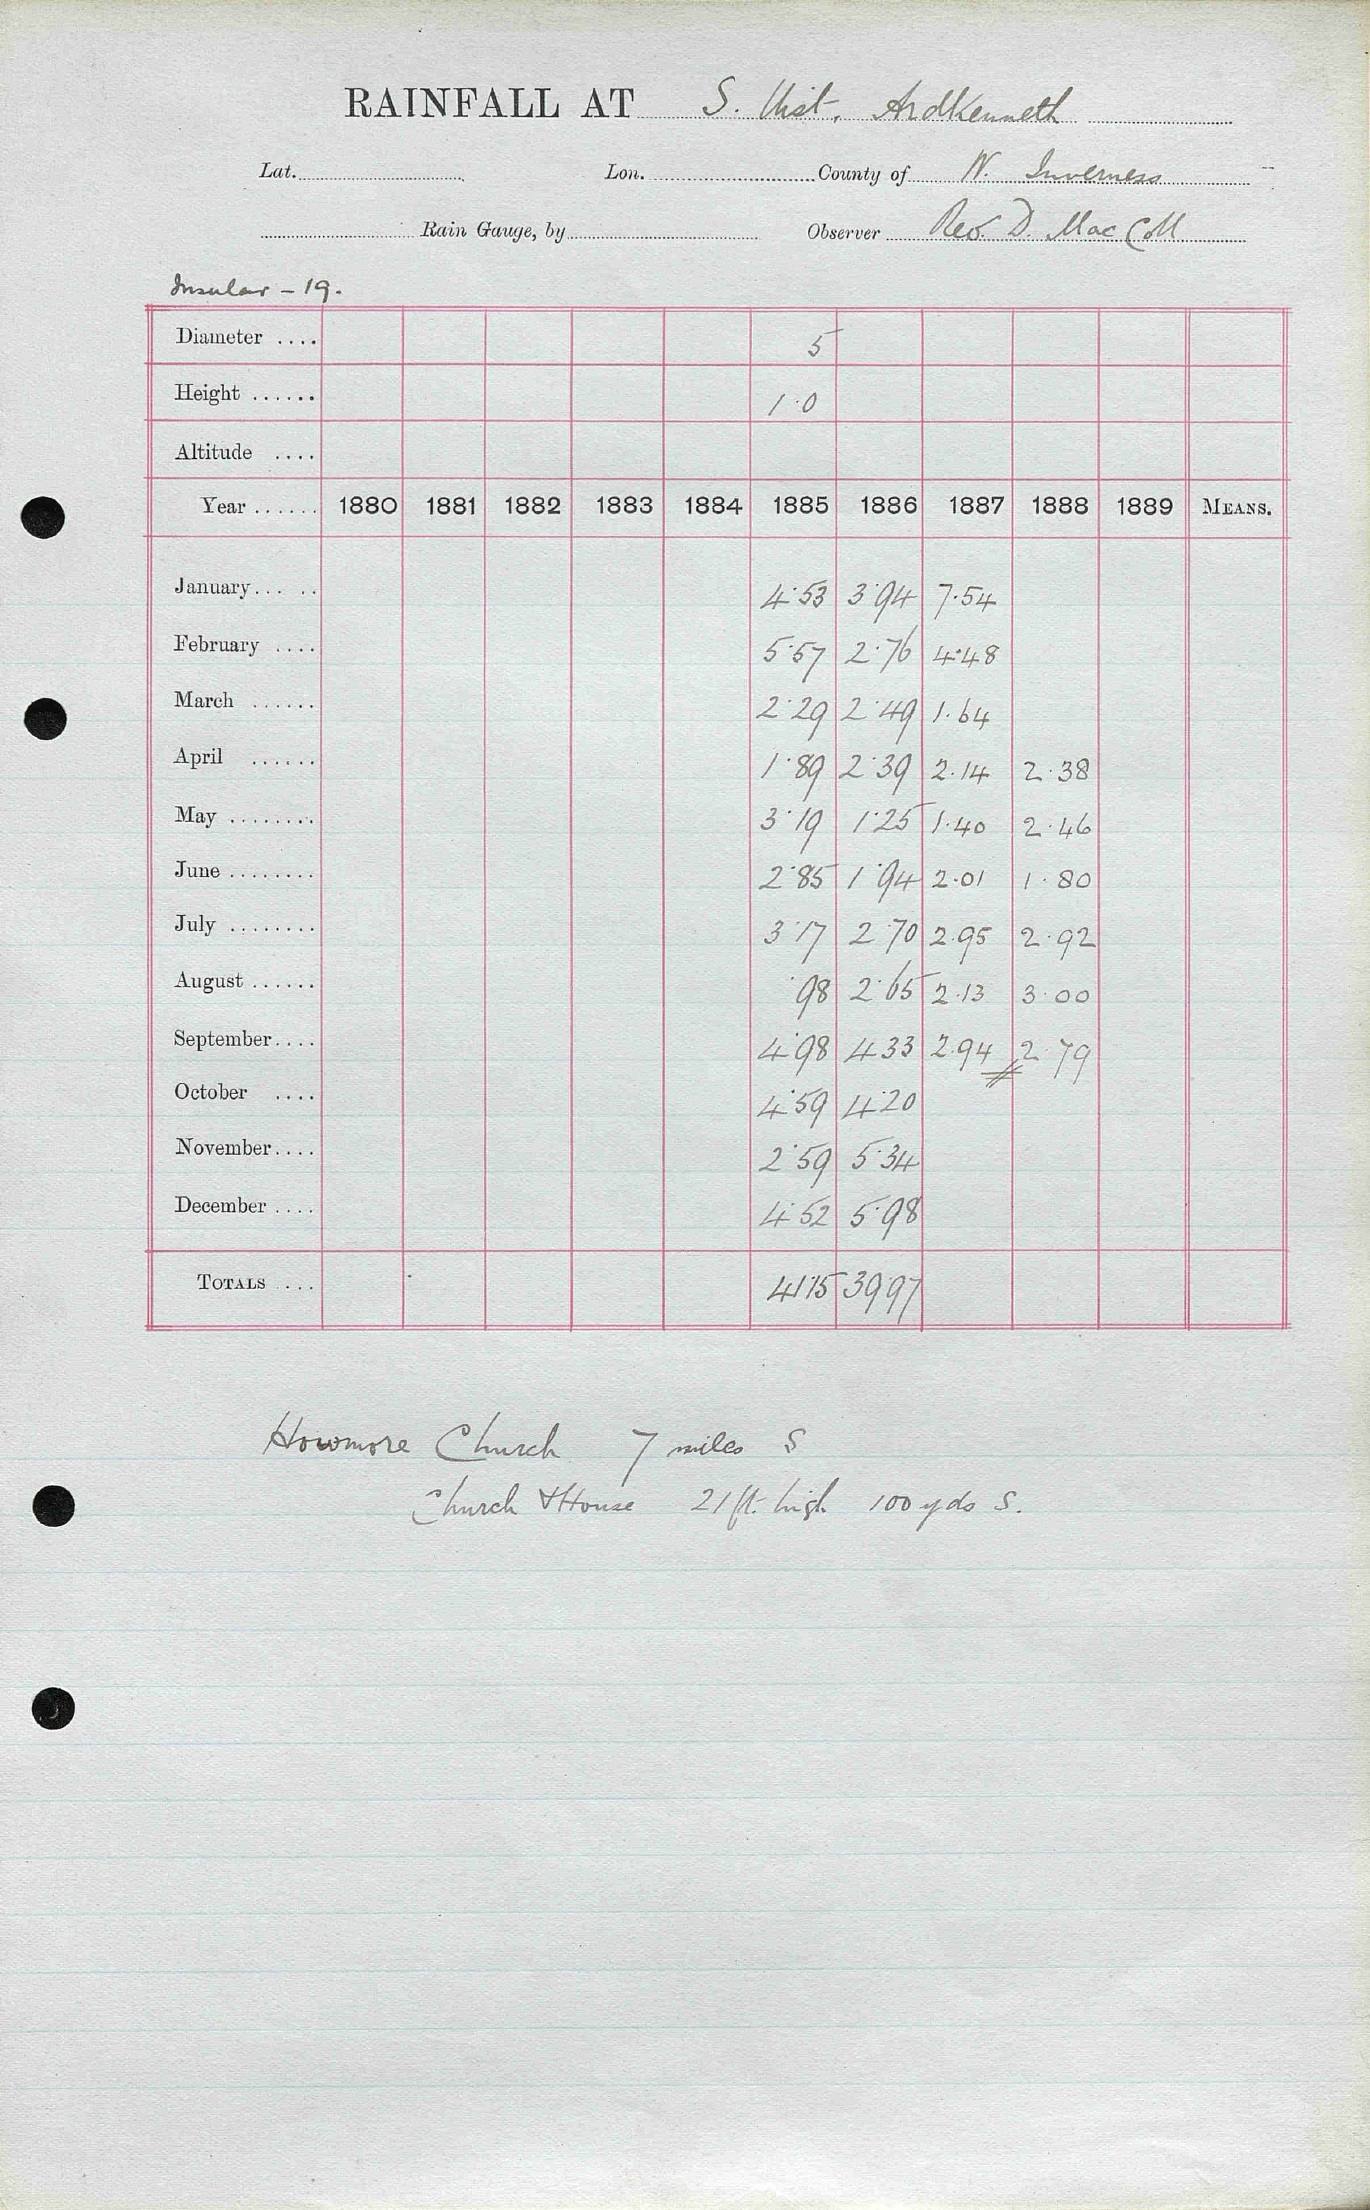 RAINFALL AT S. Uist, Ardkenneth
Lat. Lon. County of N. Inverness
Rain Gauge, by Observer Rev. D. MacColl
Insular - 19.
Diameter .... 5
Height ...... 1·0
Altitude ....
Year ...... 1880 1881 1882 1883 1884 1885 1886 1887 1888 1889 MEANS.
January... .. 4·53 3·94 7·54
February .... 5·57 2·76 4·48
March ...... 2·29 2·49 1·64
April ...... 1·89 2·39 2·14 2·38
May ........ 3·19 1·25 1·40 2·46
June ........ 2·85 1·94 2·01 1·80
July ........ 3·17 2·70 2·95 2·92
August ...... ·98 2·65 2·13 3·00
September.... 4·98 4·33 2·94 2·79
October .... 4·59 4·20
November.... 2·59 5·34
December .... 4·52 5·98
TOTALS .... 41·15 39·97
Howmore Church 7 miles S
Church & House 21 ft. high 100 yds S.